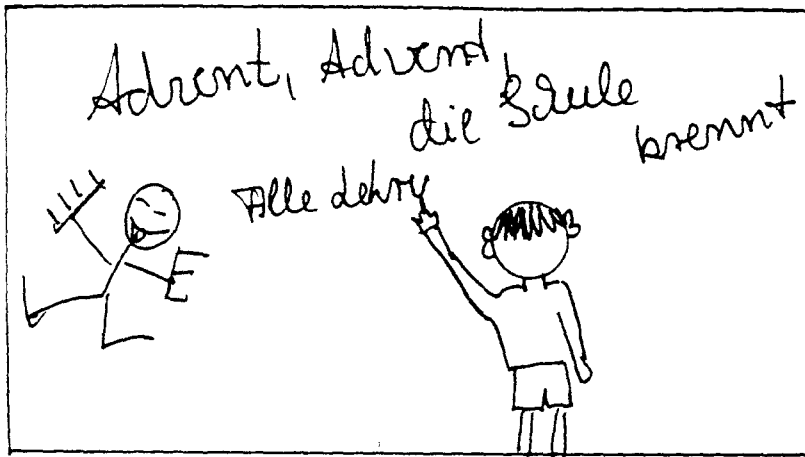 Advent, Advent,
die Schule
brennt
Alle Lehre